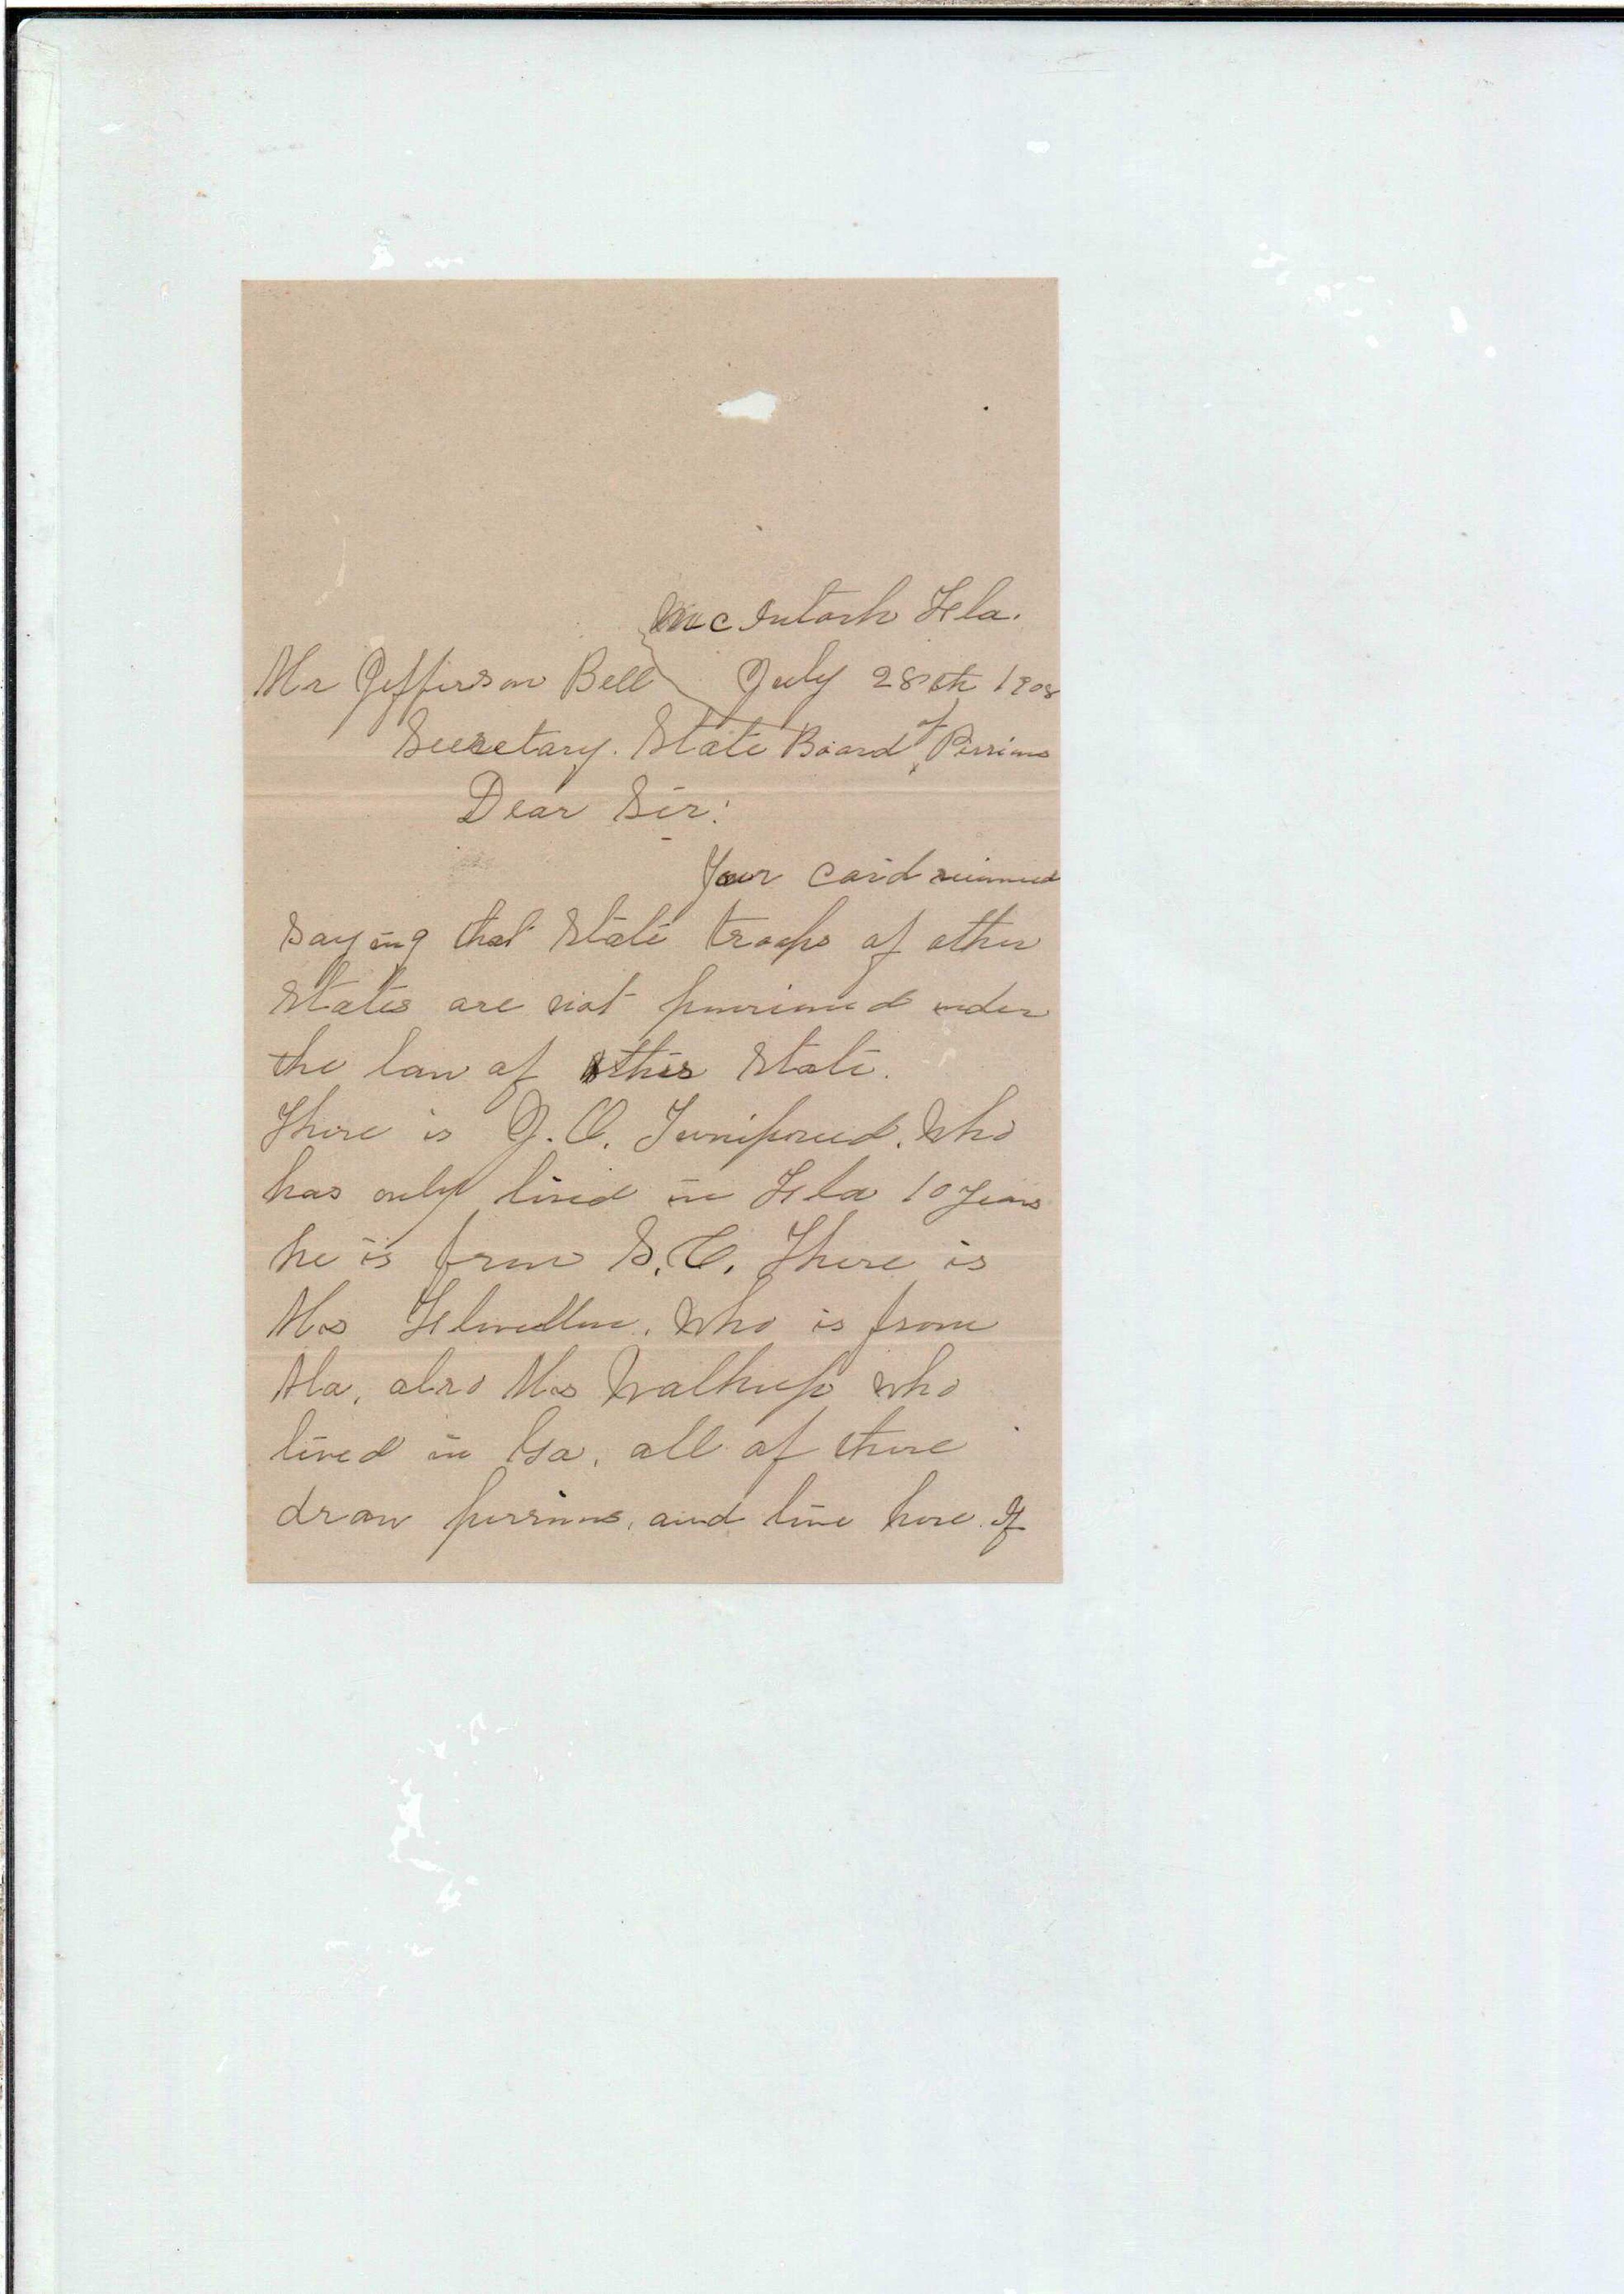 McIntosh Fla.
Mr Jefferson Bell July 28th 1908
Secretary. State Board of Pensions
Dear Sir:
Your card received
saying that State troops of other
States are not pensioned under
the law of this State.
There is J. O. who
has only lived in Fla 10 years
he is from S. C. There is
Mrs who is from
Ala, also Mrs Walkup who
lived in Ga, all of these
draw pensions, and live here. If